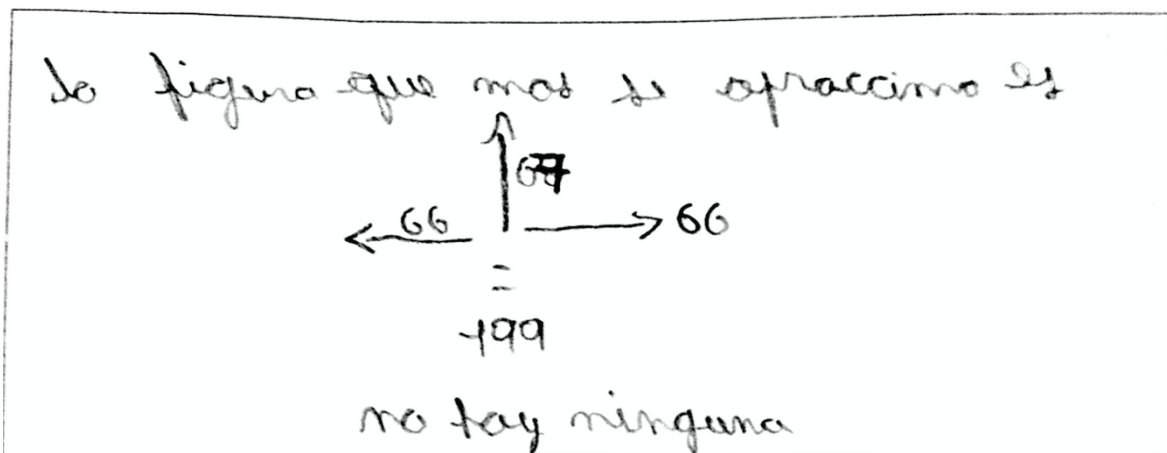 la figura que mas se apraccima es
67
66 66
=
199
no hay ninguna